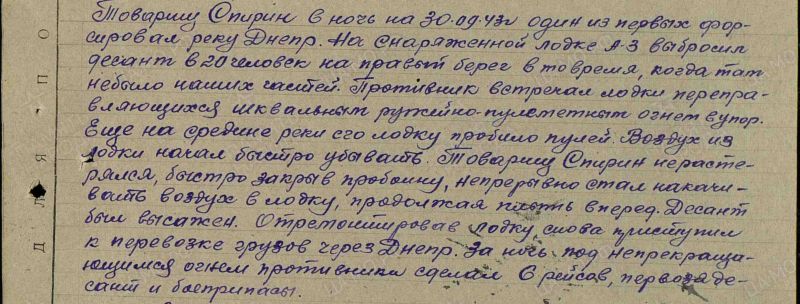 Товарищ Спирин в ночь на 30.09.43г один из первых фор-
сировал реку Днепр. На снаряженной лодке А-3 выбросил
десант в 20 человек на правый берег в то время, когда там
небыло наших частей. Противник встречал лодки перепра-
вляющихся шквальным ружейно-пулеметным огнем в упор.
Еще на средине реки его лодку пробило пулей. Воздух из
лодки начал быстро убывать. Товарищ Спирин нерасте-
рялся, быстро закрыв пробоину, непрерывно стал накачи-
вать воздух в лодку, продолжая плыть вперед. Десант
был высажен. Отремонтировав лодку, снова приступил
к перевозке грузов через Днепр. За ночь под непрекраща-
ющимся огнем противника сделал 6 рейсов, перевозя де-
сант и боеприпасы.
ДЛЯ ПО